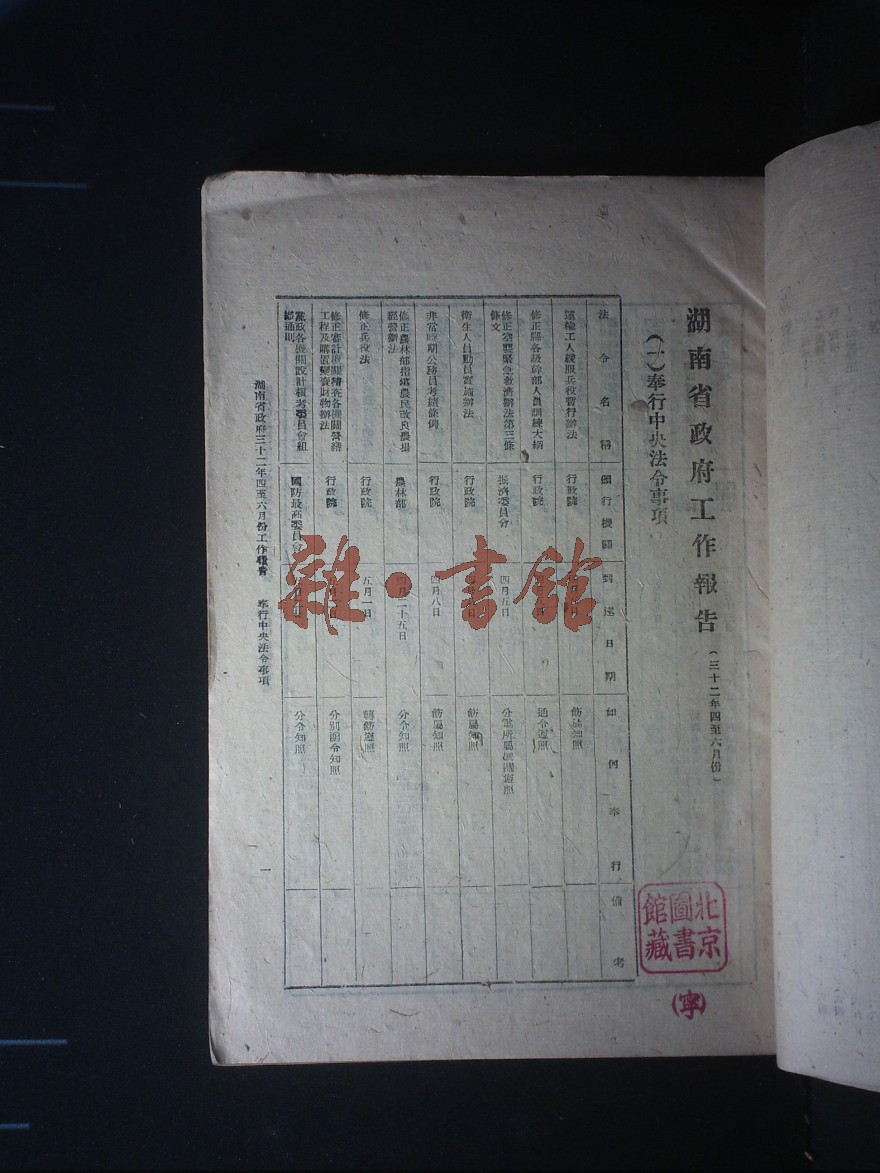 湖南省政府工作報告
(三十二年四至六月份)
(一)奉行中央法令事項
法令名稱 頒行機關 到達日期 如何奉行 備考
運輸工人緩服兵役暫行辦法 行政院 飭屬知照
修正縣各級幹部人員訓練大綱 行政院 通令遵照
修正空襲緊急救濟辦法第三條條文 振濟委員會 四月五日 分電所屬機關遵照
衛生人員動員實施辦法 行政院 飭屬知照
非常時期公務員考績條例 行政院 四月八日 飭屬知照
修正農林部指導農民改良農場經營辦法 農林部 四月二十五日 分令知照
修正兵役法 行政院 五月一日 轉飭遵照
修正審計機關稽察各機關營繕工程及購置變賣財物辦法 行政院 分別函令知照
黨政各機關設計考核委員會組織通則 國防最高委員會 分令知照
湖南省政府三十二年四至六月份工作報告 奉行中央法令事項
一
北京
圖書
館藏
(寧)
雜·書館